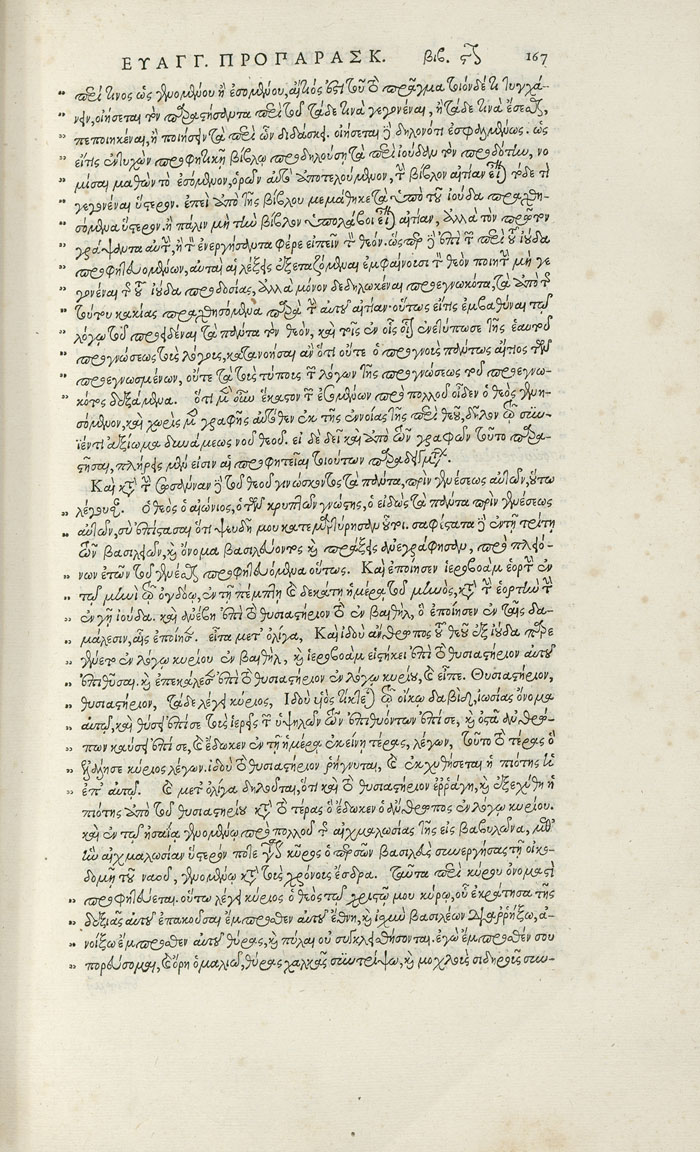 ΕΥΑΓΓ. ΠΡΟΠΑΡΑΣΚ. βιβ. ϛ 167
περί τινος ὡς γενομένου ἢ ἐσομένου, αἴτιός ἐστι τοῦ τὸ πρᾶγμα τοιόνδε τι τυγχά-
νειν, οἰήσεται τὸν παραστήσαντα περὶ τοῦ τάδε τινὰ γεγονέναι, ἢ τάδε τινὰ ἔσεσθαι,
πεποιηκέναι, ἢ ποιήσειν τὰ περὶ ὧν διδάσκει. οἰήσεται δὲ δηλονότι ἐσφαλμένως. ὡς
εἴ τις ἐντυχὼν προφητικῇ βίβλῳ προδηλούσῃ τὰ περὶ ἰούδαν τὸν προδότην, νο
μίσαι μαθὼν τὸ ἐσόμενον, ὁρῶν αὐτὸ ἀποτελούμενον, τὴν βίβλον αἰτίαν εἶναι τοῦδέ τι
γεγονέναι ὕστερον. ἐπεὶ ἀπὸ τῆς βίβλου μεμάθηκε τὰ ὑπὸ τοῦ ἰούδα πραχθη-
σόμενα ὕστερον. ἢ πάλιν μὴ τὴν βίβλον ὑπολάβοι εἶναι αἰτίαν, ἀλλὰ τὸν πρῶτον
γράψαντα αὐτὴν, ἢ τὸν ἐνεργήσαντα φέρε εἰπεῖν τὸν θεόν. ὥσπερ δὲ ἐπὶ τῶν περὶ τοῦ ἰούδα
προφητευομένων, αὐταὶ αἱ λέξεις ἐξεταζόμεναι ἐμφαίνουσι τὸν θεὸν ποιητὴν μὴ γε
γονέναι τῆς τοῦ ἰούδα προδοσίας, ἀλλὰ μόνον δεδηλωκέναι προεγνωκότα, τὰ ἀπὸ τῆς
τούτου κακίας πραχθησόμενα παρὰ τὴν αὐτοῦ αἰτίαν· οὕτως εἴ τις ἐμβαθύναι τῷ
λόγῳ τοῦ προειδέναι τὰ πάντα τὸν θεόν, καὶ τοῖς ἐν οἷς οἷον ἐνετύπωσε τῆς ἑαυτοῦ
προγνώσεως τοῖς λόγοις, κατανοήσαι ἂν ὅτι οὔτε ὁ προγνοὺς πάντως αἴτιος τῶν
προεγνωσμένων, οὔτε τὰ τοὺς τύπους τῶν λόγων τῆς προγνώσεως τοῦ προεγνω-
κότος δεξάμενα. ὅτι μὲν οὖν ἕκαστον τῶν ἐσομένων πρὸ πολλοῦ οἶδεν ὁ θεὸς γενη-
σόμενον, καὶ χωρὶς μὲν γραφῆς αὐτόθεν ἐκ τῆς ἐννοίας τῆς περὶ θεοῦ, δῆλον τῷ συν-
ϊέντι ἀξίωμα δυνάμεως νοῦ θεοῦ. εἰ δὲ δεῖ καὶ ἀπὸ τῶν γραφῶν τοῦτο παρα-
στῆσαι, πλήρεις μέν εἰσιν αἱ προφητεῖαι τοιούτων παραδειγμάτων.
Καὶ κατὰ τὴν σωσάνναν δὲ τοῦ θεοῦ γινώσκοντος τὰ πάντα, πρὶν γενέσεως αὐτῶν, οὕτω
λέγουσαν. Ὁ θεὸς ὁ αἰώνιος, ὁ τῶν κρυπτῶν γνώστης, ὁ εἰδὼς τὰ πάντα πρὶν γενέσεως
αὐτῶν, σὺ ἐπίστασαι ὅτι ψευδῆ μου κατεμαρτύρησαν οὗτοι. σαφέστατα δὲ ἐν τῇ τρίτῃ
τῶν βασιλειῶν, καὶ ὄνομα βασιλεύοντος καὶ πράξεις ἀνεγράφησαν, πρὸ πλειό-
νων ἐτῶν τοῦ γενέσθαι προφητευόμενα οὕτως. Καὶ ἐποίησεν ἱεροβοὰμ ἑορτὴν ἐν
τῷ μηνὶ τῷ ὀγδόῳ, ἐν τῇ πέμπτῃ καὶ δεκάτῃ ἡμέρᾳ τοῦ μηνὸς, κατὰ τὴν ἑορτὴν τὴν
ἐν γῇ ἰούδα. καὶ ἀνέβη ἐπὶ τὸ θυσιαστήριον τὸ ἐν βαιθὴλ, ὃ ἐποίησεν ἐν ταῖς δα-
μάλεσιν, αἷς ἐποίησε. εἶτα μετ' ὀλίγα, Καὶ ἰδοὺ ἄνθρωπος τοῦ θεοῦ ἐξ ἰούδα παρε
γένετο ἐν λόγῳ κυρίου ἐν βαιθὴλ, καὶ ἱεροβοὰμ εἱστήκει ἐπὶ τὸ θυσιαστήριον αὐτοῦ
ἐπιθῦσαι. καὶ ἐπεκάλεσεν ἐπὶ τὸ θυσιαστήριον ἐν λόγῳ κυρίου, καὶ εἶπε. Θυσιαστήριον,
θυσιαστήριον, τάδε λέγει κύριος, Ἰδοὺ υἱὸς τίκτεται τῷ οἴκῳ δαβὶδ, ἰωσίας ὄνομα
αὐτῷ, καὶ θύσει ἐπὶ σὲ τοὺς ἱερεῖς τῶν ὑψηλῶν τῶν ἐπιθυόντων ἐπὶ σὲ, καὶ ὀστᾶ ἀνθρώ-
πων καύσει ἐπὶ σὲ, καὶ ἔδωκεν ἐν τῇ ἡμέρᾳ ἐκείνῃ τέρας, λέγων, τοῦτο τὸ τέρας ὃ
ἐλάλησε κύριος λέγων. ἰδοὺ τὸ θυσιαστήριον ῥήγνυται, καὶ ἐκχυθήσεται ἡ πιότης ἡ
ἐπ' αὐτῷ. καὶ μετ' ὀλίγα δηλοῦται, ὅτι καὶ τὸ θυσιαστήριον ἐῤῥάγη, καὶ ἐξεχύθη ἡ
πιότης ἀπὸ τοῦ θυσιαστηρίου κατὰ τὸ τέρας ὃ ἔδωκεν ὁ ἄνθρωπος ἐν λόγῳ κυρίου.
καὶ ἐν τῷ ἠσαΐᾳ γενομένῳ πρὸ πολλοῦ τῆς αἰχμαλωσίας τῆς εἰς βαβυλῶνα, μεθ'
ἣν αἰχμαλωσίαν ὕστερόν ποτε γίνεται κῦρος ὁ περσῶν βασιλεὺς συνεργήσας τῇ οἰκο-
δομῇ τοῦ ναοῦ, γενομένῳ κατὰ τοὺς χρόνοις ἔσδρα. ταῦτα περὶ κύρου ὀνομαστὶ
προφητεύεται. οὕτω λέγει κύριος ὁ θεὸς τῷ χριστῷ μου κύρῳ, οὗ ἐκράτησα τῆς
δεξιᾶς αὐτοῦ ἐπακοῦσαι ἔμπροσθεν αὐτοῦ ἔθνη, καὶ ἰσχὺν βασιλέων διαῤῥήξω, ἀ-
νοίξω ἔμπροσθεν αὐτοῦ θύρας, καὶ πύλαι οὐ συγκλεισθήσονται. ἐγὼ ἔμπροσθέν σου
πορεύσομαι, καὶ ὄρη ὁμαλιῶ, θύρας χαλκᾶς συντρίψω, καὶ μοχλοὺς σιδηροῦς συν-